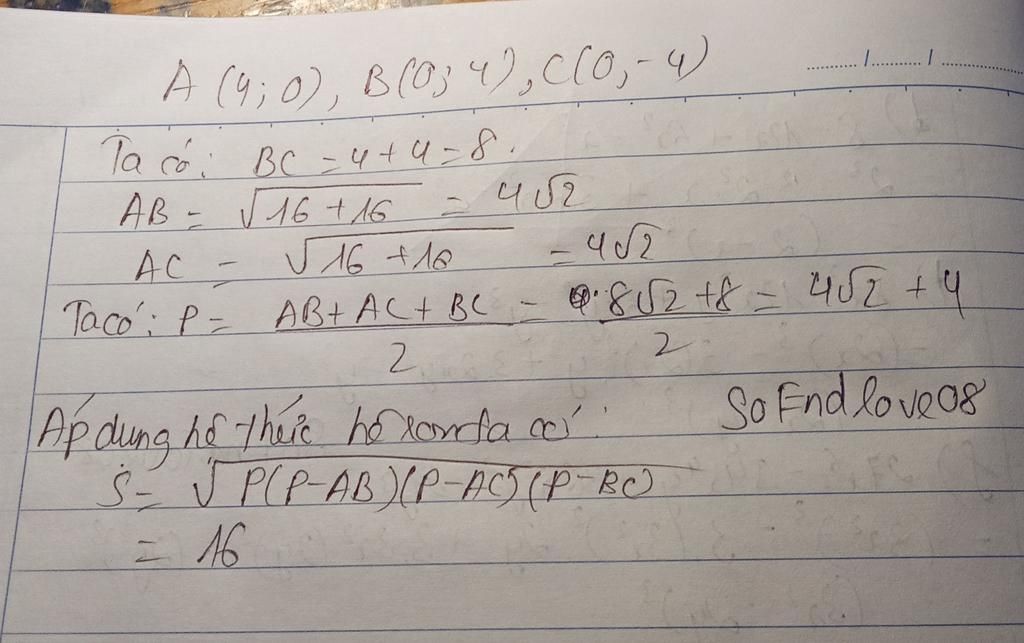 A (4; 0), B(0; 4), C(0; -4)
Ta có: BC = 4 + 4 = 8.
AB = √16 + 16 = 4√2
AC = √16 + 16 = 4√2
Ta có: P = (AB + AC + BC)/2 = (8√2 + 8)/2 = 4√2 + 4
Áp dụng hệ thức hê ta có: So End love 08
S = √P(P-AB)(P-AC)(P-BC)
= 16